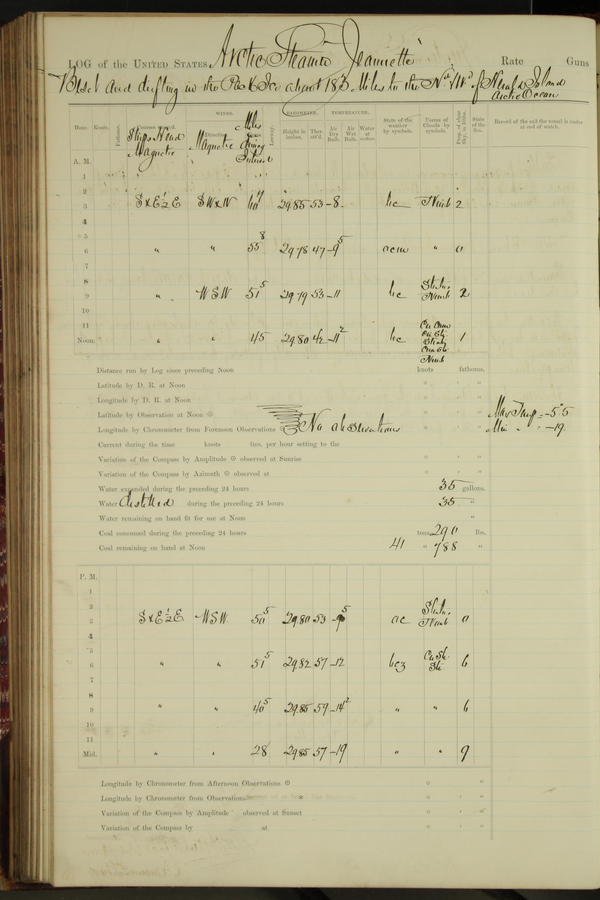 LOG of the UNITED STATES Arctic Steamer "Jeannette" Rate Guns
Beset and drifting in the Pack Ice about 183 Miles to the Nd & Wd of Herald Island
Arctic Ocean
WINDS. BAROMETER. TEMPERATURE.
Hour. Knots. Fathoms. Ships Head Magnetic Direction Magnetic Miles during Interval Leeway. Height in inches. Ther. att'd. Air Dry Bulb. Air Wet Bulb. Water at surface. State of the weather by symbols. Forms of Clouds by symbols. Prop. of clear Sky, in 10ths. State of the Sea. Record of the sail the vessel is under at end of watch.
A. M.
1
2
3 S x E ½ E SW x W 60 29.85 53 -8 bc Nimb 2
4
5
6 " " 55 8 29.78 47 -9 5 " 0
7
8
9 " WSW 51 5 29.79 53 -11 bc Nimb 2
10
11
Noon. " " 45 29.80 42 -11 2 bc Nimb 1
Distance run by Log since preceding Noon knots fathoms.
Latitude by D. R. at Noon ° ' "
Longitude by D. R. at Noon ° ' "
Latitude by Observation at Noon ° ' " Max Temp = -5.5
Longitude by Chronometer from Forenoon Observations No observations ° ' " Min " " -19
Current during the time knots fms. per hour setting to the
Variation of the Compass by Amplitude observed at Sunrise ° ' "
Variation of the Compass by Azimuth observed at ° ' "
Water expended during the preceding 24 hours 35 gallons.
Water distilled during the preceding 24 hours 35 "
Water remaining on hand fit for use at Noon "
Coal consumed during the preceding 24 hours tons, 290 lbs.
Coal remaining on hand at Noon 41 " 788 "
P. M.
1
2
3 S x E ½ E WSW 50 5 29.80 53 -9 5 oc Nimb 0
4
5
6 " " 51 5 29.82 57 -12 bcz Cu St. 6
7
8
9 " " 40 5 29.85 59 -14 2 " " 6
10
11
Mid. " " 28 29.85 57 -19 " " 9
Longitude by Chronometer from Afternoon Observations ° ' "
Longitude by Chronometer from Observations ° ' "
Variation of the Compass by Amplitude observed at Sunset ° ' "
Variation of the Compass by at ° ' "